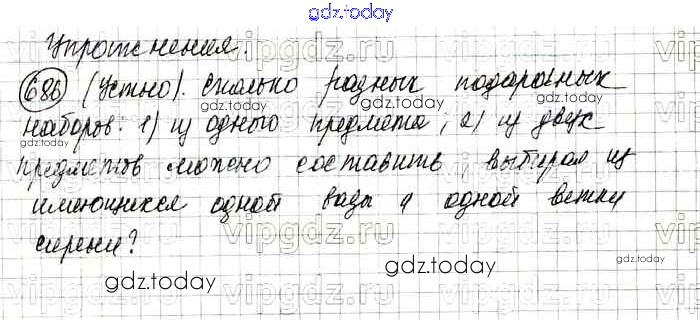 gdz.today
Упражнения.
686 (Устно). Сколько разных подарочных
наборов: 1) из одного предмета; 2) из двух
предметов можно составить, выбирая из
имеющихся одной вазы и одной ветки
сирени?
gdz.today
gdz.today
gdz.today
gdz.today
gdz.today
vipgdz.ru
vipgdz.ru
vipgdz.ru
vipgdz.ru